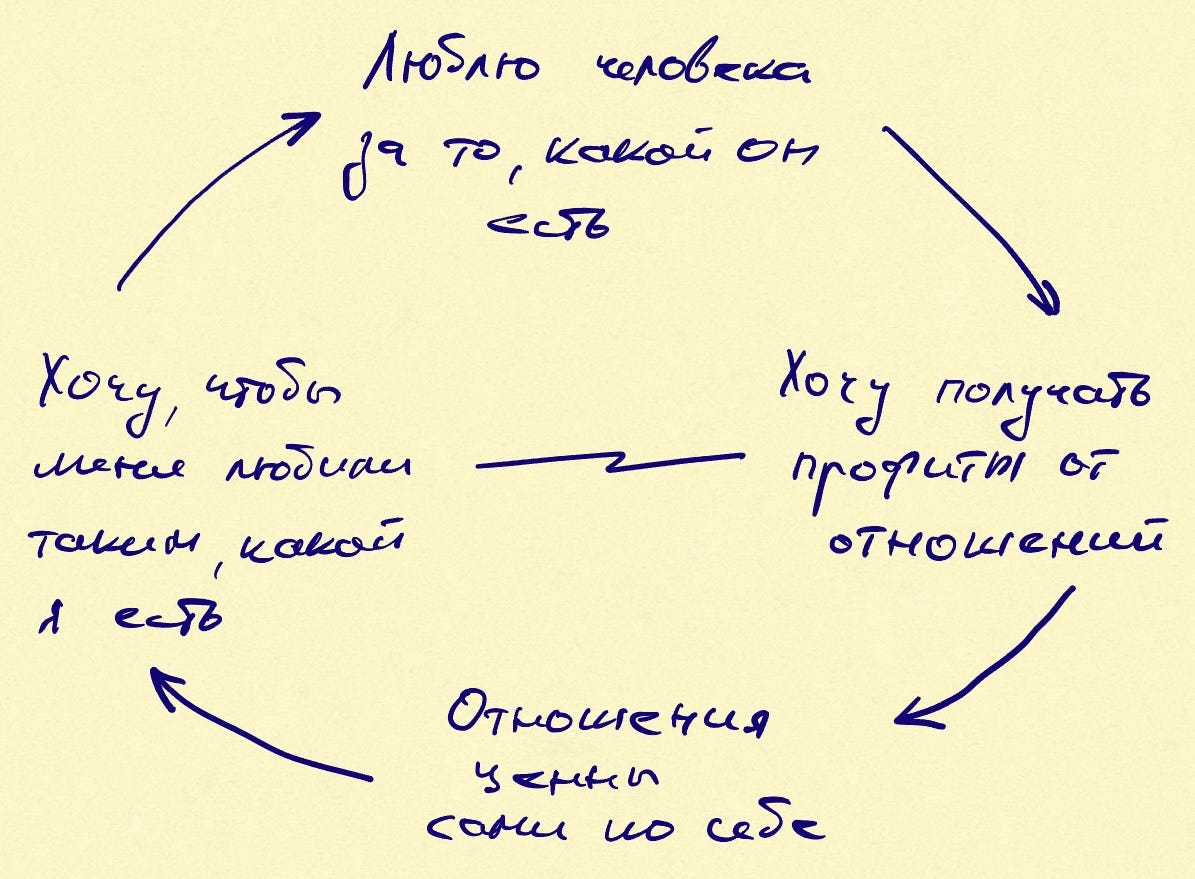 Люблю человека
за то, какой он
есть
Хочу, чтобы
меня любили
таким, какой
я есть
Хочу получать
профиты от
отношений
Отношения
ценны
сами по себе